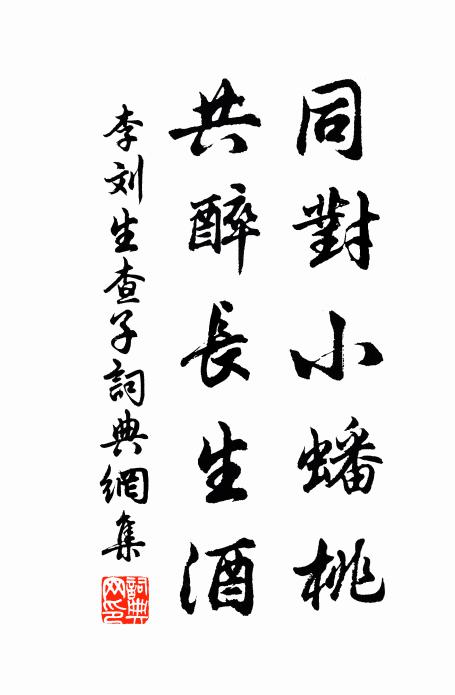 同對小蟠桃
共醉長生酒
李刘生查子詞典網集
詞典網印